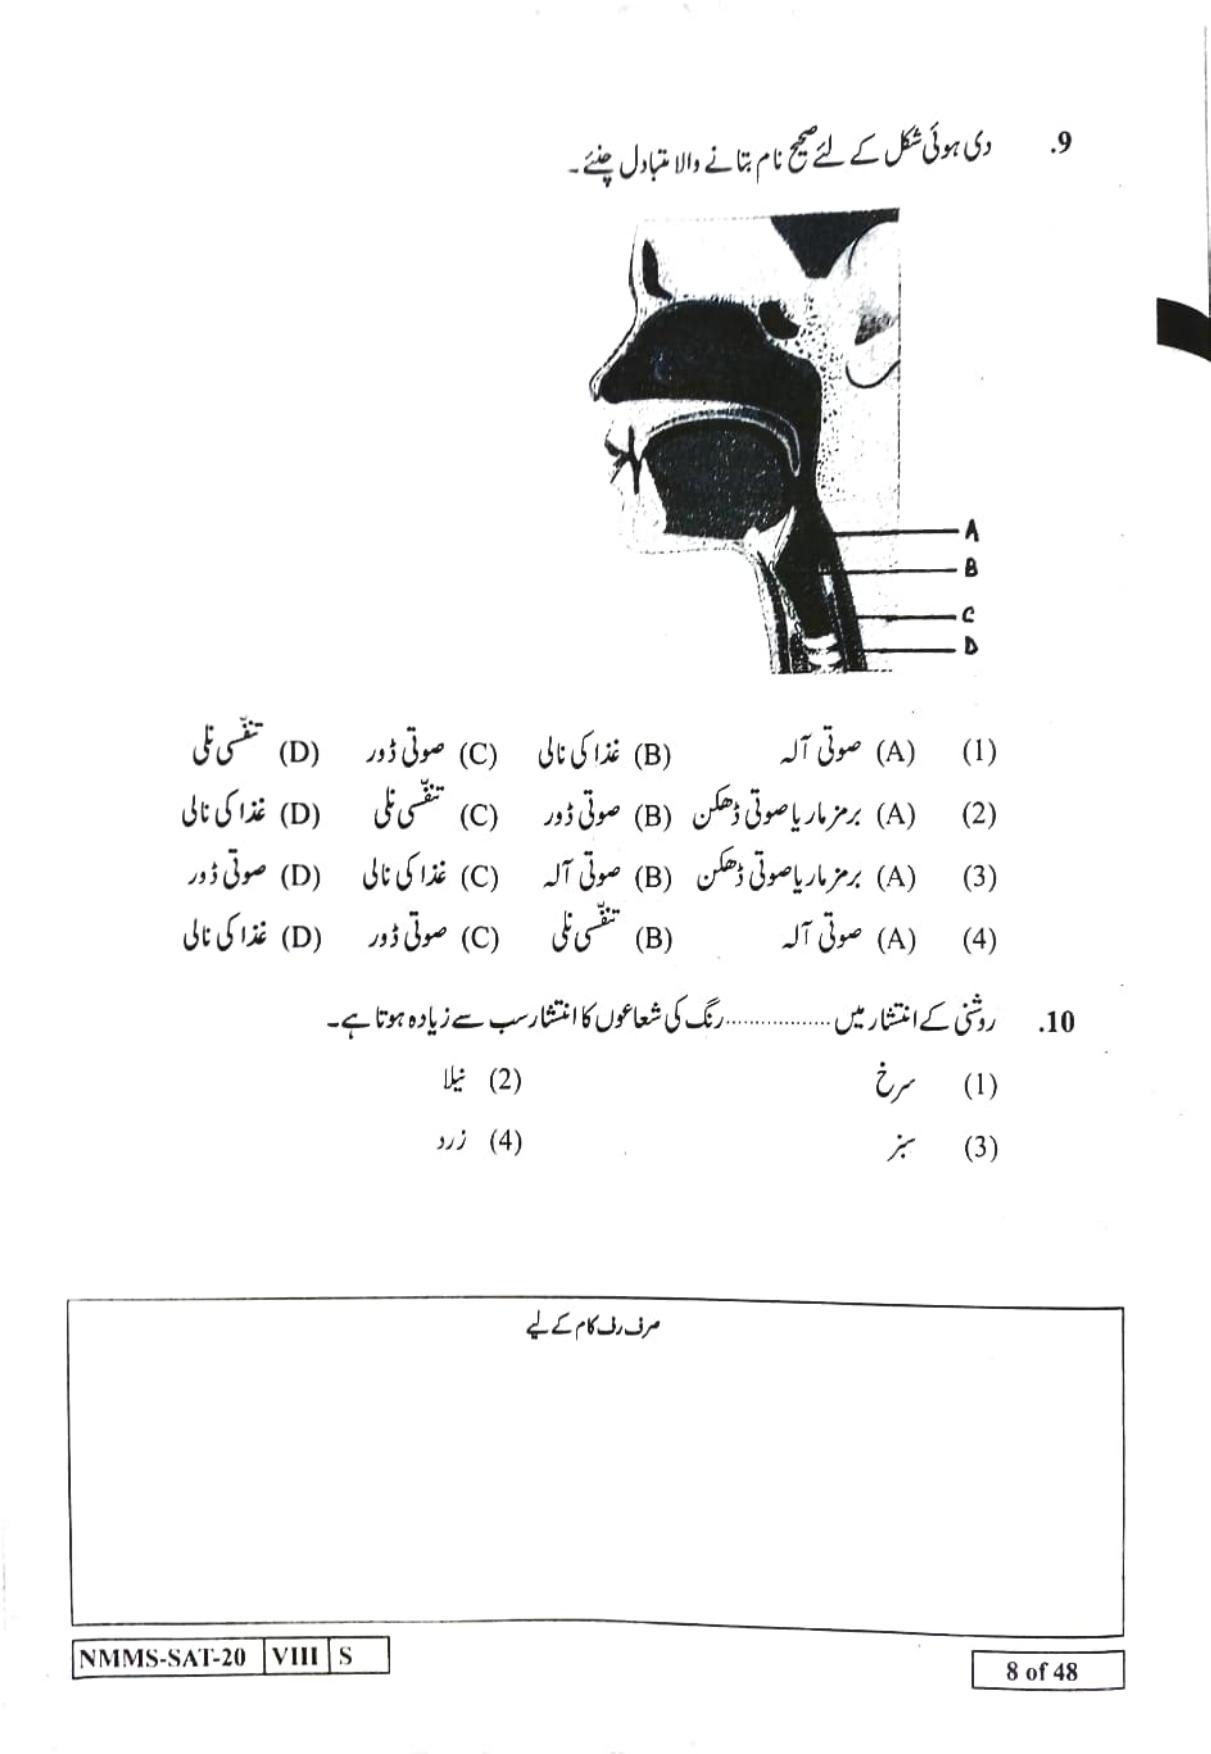 9. دی ہوئی شکل کے لئے صحیح نام بتانے والا متبادل چنئے۔
A
B
C
D
(1) (A) صوتی آلہ (B) غذا کی نالی (C) صوتی ڈور (D) تنفّسی نلی
(2) (A) برمزمار یا صوتی ڈھکن (B) صوتی ڈور (C) تنفّسی نلی (D) غذا کی نالی
(3) (A) برمزمار یا صوتی ڈھکن (B) صوتی آلہ (C) غذا کی نالی (D) صوتی ڈور
(4) (A) صوتی آلہ (B) تنفّسی نلی (C) صوتی ڈور (D) غذا کی نالی
10. روشنی کے انتشار میں ................. رنگ کی شعاعوں کا انتشار سب سے زیادہ ہوتا ہے۔
(1) سرخ (2) نیلا
(3) سبز (4) زرد
صرف رف کام کے لیے
NMMS-SAT-20 VIII S
8 of 48